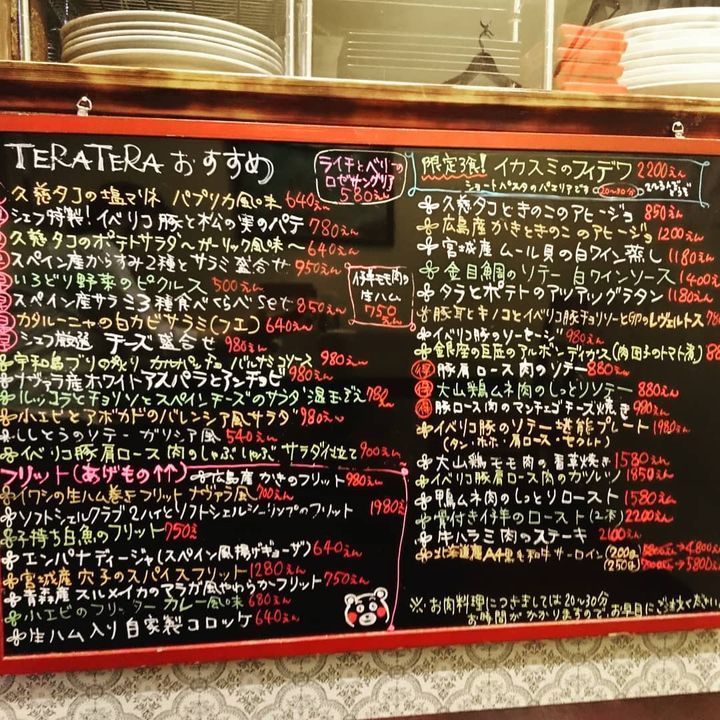 TERATERA おすすめ
ライチとベリーの
ロゼサングリア
580えん
久慈タコの塩マリネ パプリカ風味 640えん
シェフ特製!イベリコ豚と松の実のパテ 780えん
久慈タコのポテトサラダ〜ガーリック風味〜 640えん
スペイン産からすみ2種とサラミ盛合せ 950えん
いろどり野菜のピクルス 500えん
スペイン産サラミ3種食べくらべset 850えん
カタルーニャの白カビサラミ(フエ) 640えん
シェフ厳選 チーズ盛合せ 980えん
宇和島ブリの炙りカルパッチョ バルサミコソース 980えん
ナヴァラ産ホワイトアスパラとアンチョビ 980えん
ルッコラとチョリソとスペインチーズのサラダ 温玉ぞえ 780えん
小エビとアボカドのバレンシア風サラダ 980えん
ししとうのソテー ガリシア風 540えん
イベリコ豚肩ロース肉のしゃぶしゃぶ サラダ仕立て 900えん
仔羊モモ肉の
生ハム
750
えん
フリット(あげもの↑↑)
広島産かきのフリット 980えん
イワシの生ハム巻きフリット ナヴァラ風 700えん
ソフトシェルクラブ2ハイとソフトシェルシュリンプのフリット 1980えん
子持ち白魚のフリット 750えん
エンパナディージャ(スペイン風揚げギョーザ) 640えん
宮城産穴子のスパイスフリット 1280えん
青森産スルメイカのアラガ風やわらかフリット 750えん
小エビのフリッター カレー風味 680えん
生ハム入り自家製コロッケ 640えん
限定3食! イカスミのフィデワ 2200えん
ショートパスタのパエリアです 20〜30分
久慈タコときのこのアヒージョ 850えん
広島産かきときのこのアヒージョ 1200えん
宮城産ムール貝の白ワイン蒸し 1180えん
金目鯛のソテー 白ワインソース 1400えん
タラとポテトのアツアツグラタン 1180えん
豚耳とキノコとイベリコ豚チョリソーと卵のレヴェルトス
イベリコ豚のソーセージ 980えん
銀座の巨匠のアルボンディガス(肉団子のトマト煮)
得 豚肩ロース肉のソテー 880えん
得 大山鶏ムネ肉のしっとりソテー 880えん
得 豚ロース肉のマンチェゴチーズ焼き 980えん
イベリコ豚のソテー堪能プレート 1980えん
(タン・ホホ・肩ロース・セクレト)
大山鶏モモ肉の香草焼き 1580えん
イベリコ豚肩ロース肉のカツレツ 1850えん
鴨ムネ肉のしっとりロースト 1580えん
骨付き仔羊のロースト(2本) 2200えん
牛ハラミ肉のステーキ 2100えん
北海道産A4黒毛和牛サーロイン(200g) →4800えん
(250g) →5800えん
※お肉料理につきましては20〜30分
お時間がかかりますので、お早目にご注文ください